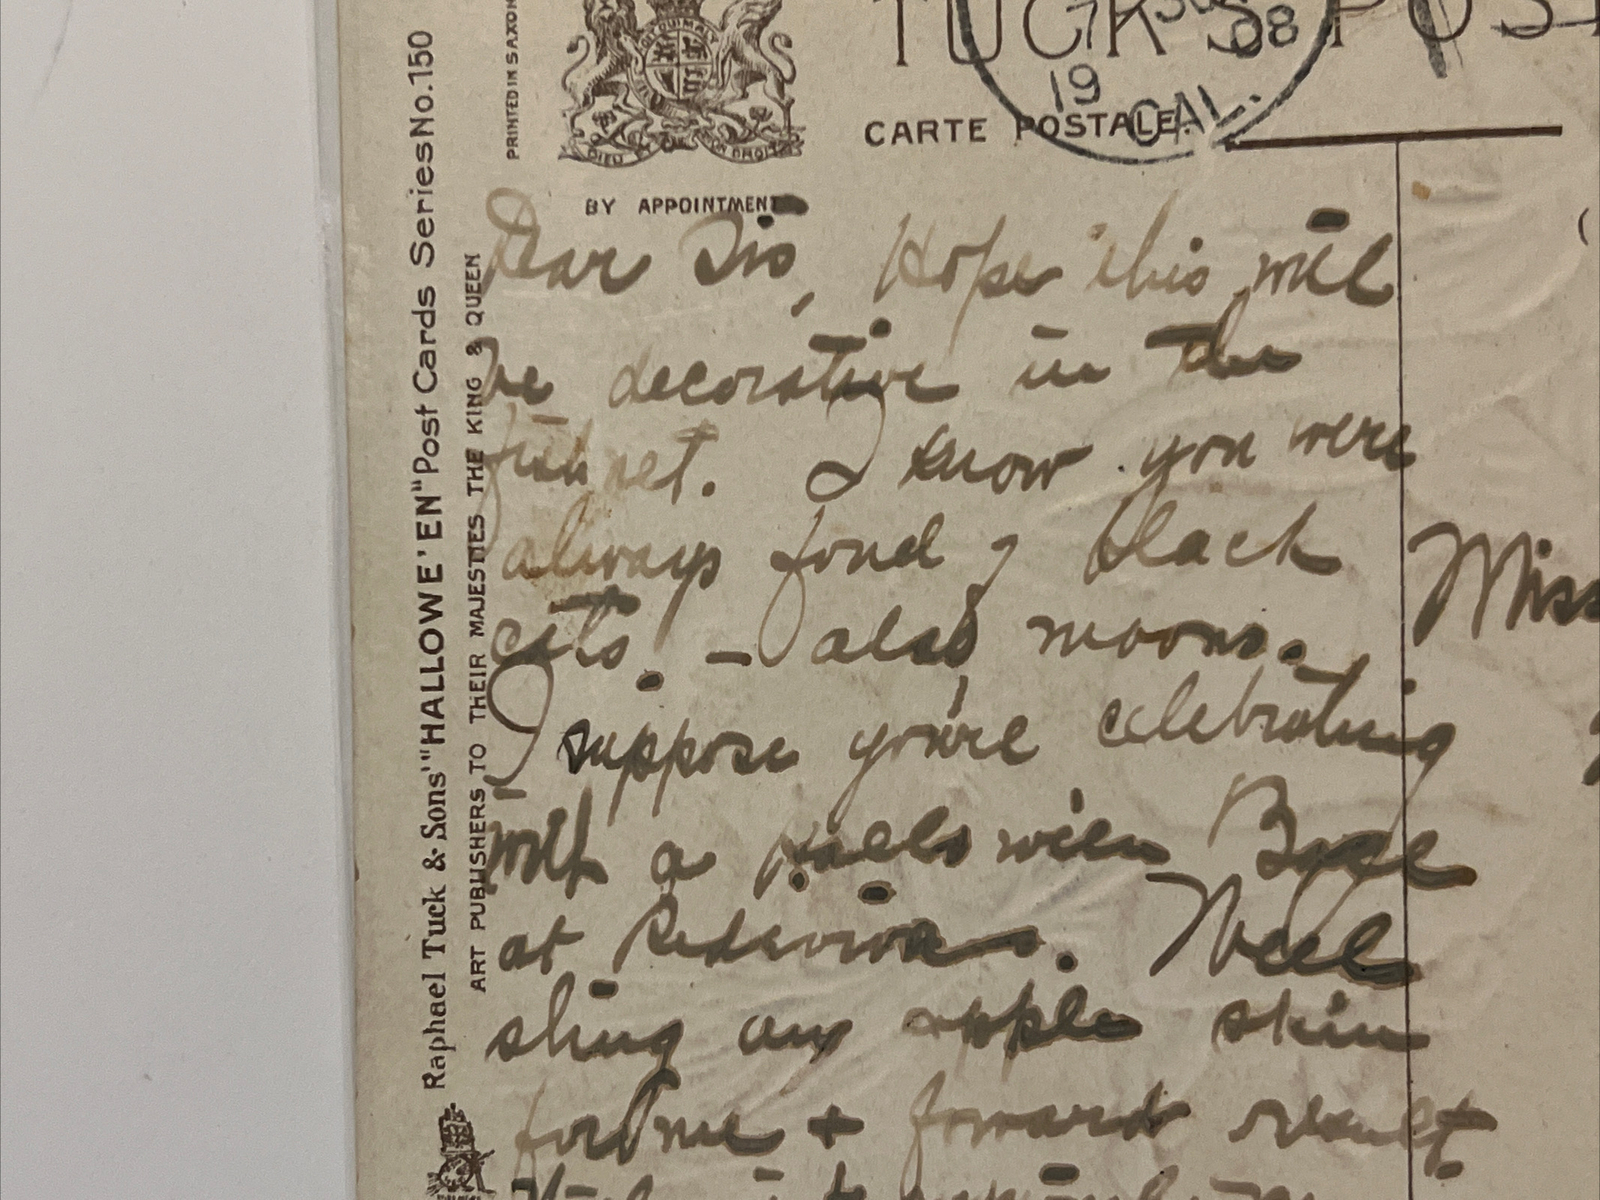 Raphael Tuck & Sons' "HALLOWE'EN" Post Cards Series No. 150
ART PUBLISHERS TO THEIR MAJESTIES THE KING & QUEEN
PRINTED IN SAXON
DIEU ET MON DROIT
BY APPOINTMENT
TUCK'S POST
CARTE POSTALE
7 08
19
CAL.
Dear Sis, Hope this will
be decorative in the
fish net. I know you were
always fond of black
cats. - also moons.
I suppose you're celebrating
with a Hallowe'en
at . Well
sling an apple skin
for me + forward result
Miss